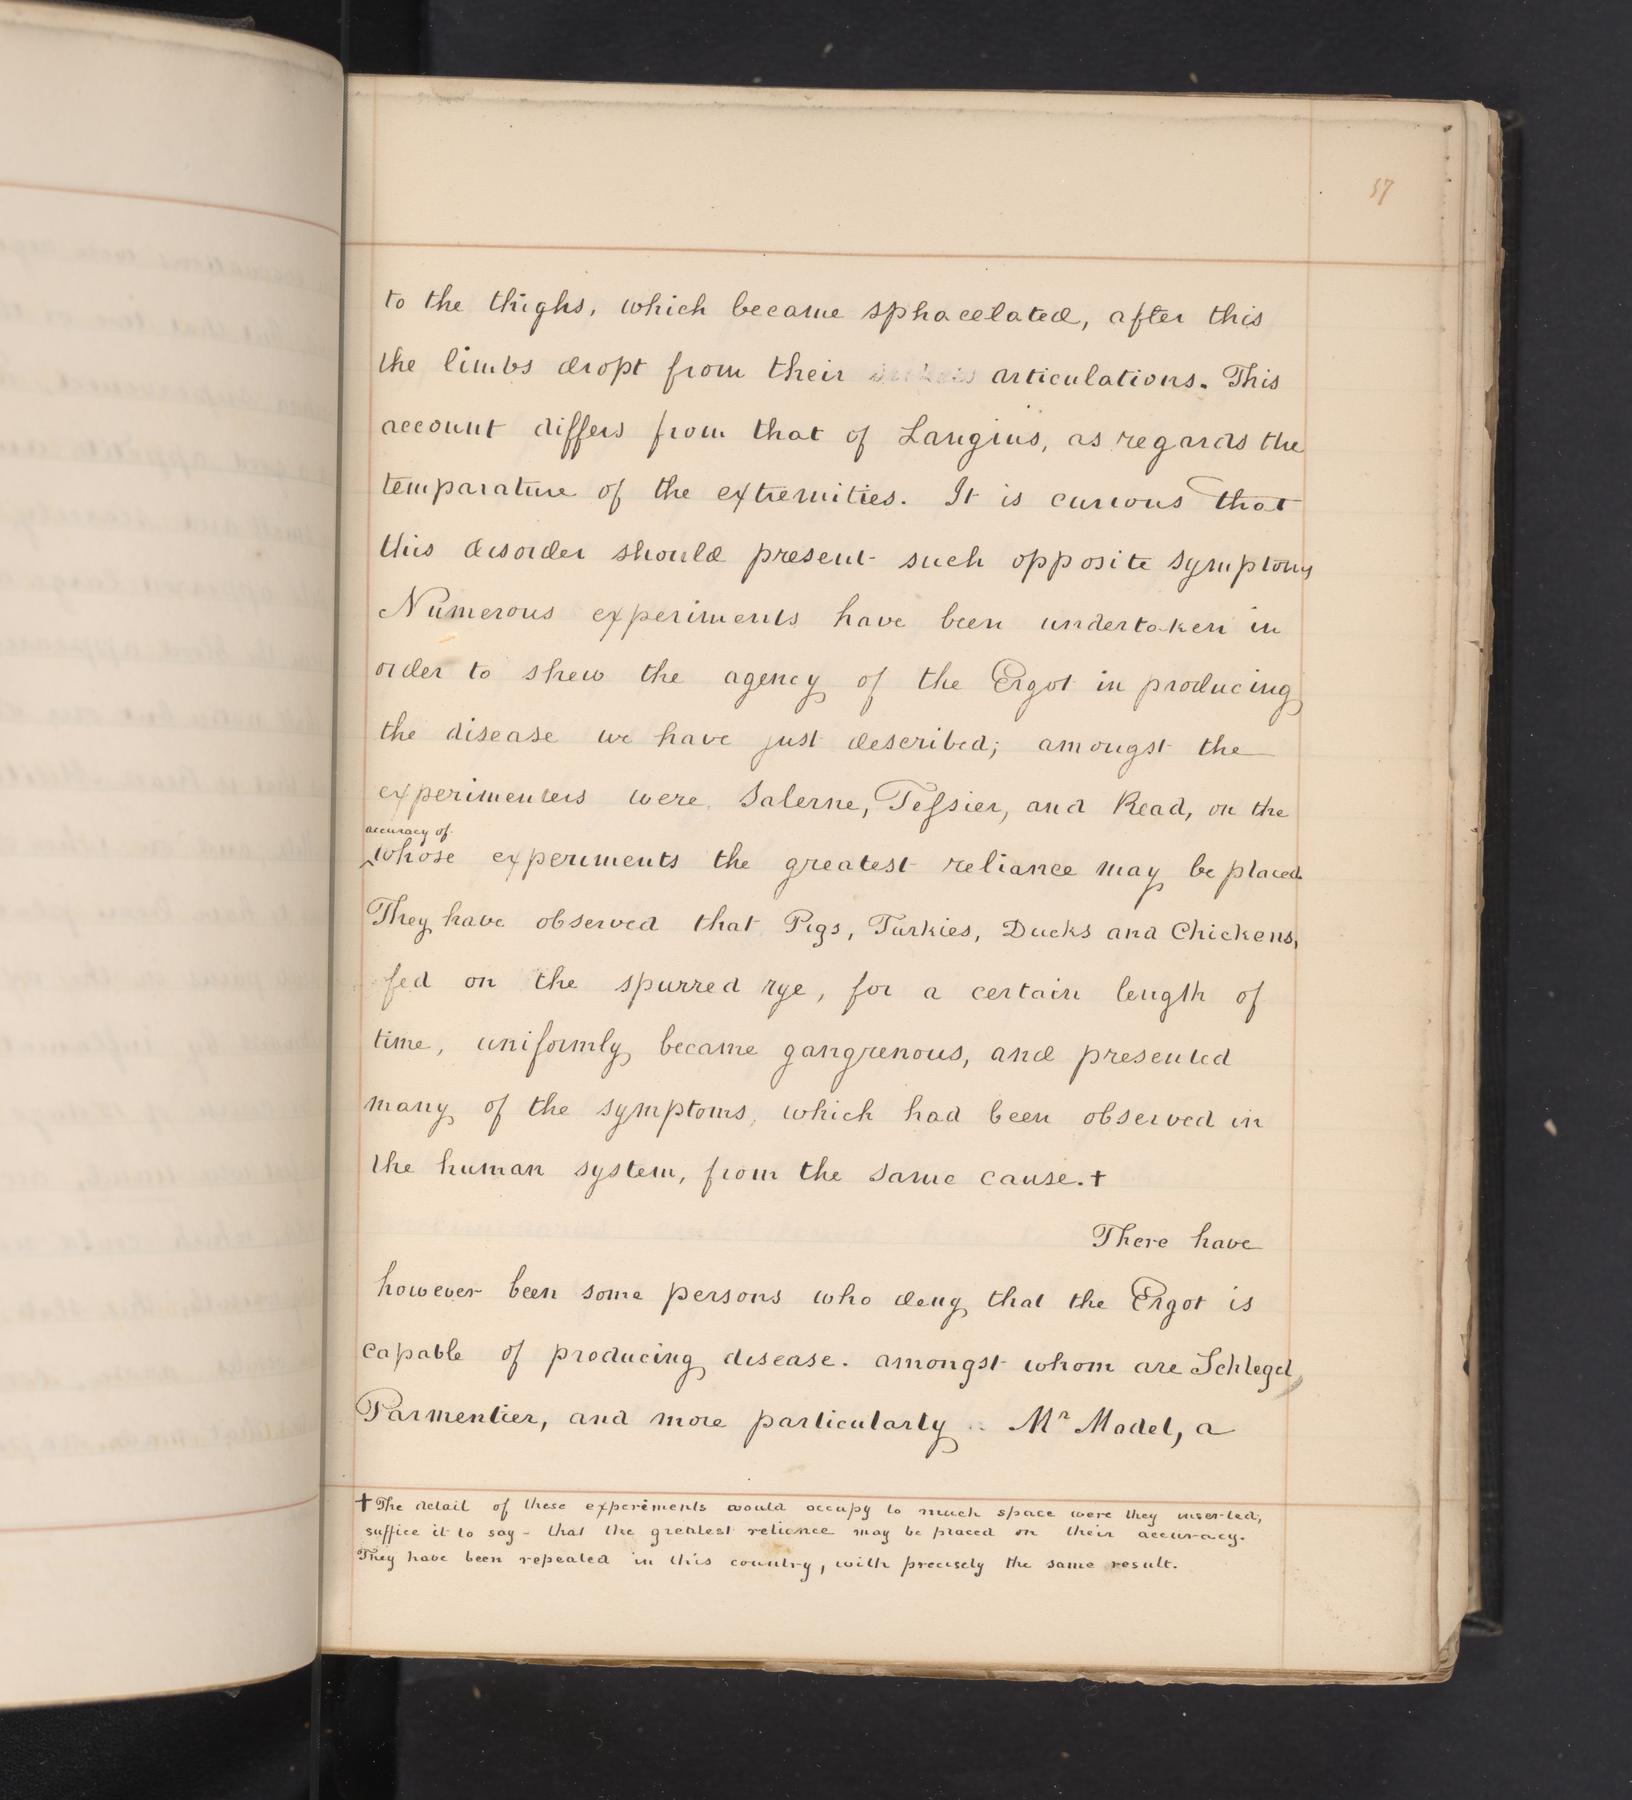 57
to the thighs, which became sphacelated, after this
the limbs dropt from their articulations. This
account differs from that of Langius, as regards the
temparature of the extremities. It is curious that
this disorder should present such opposite symptoms
Numerous experiments have been undertaken in
order to shew the agency of the Ergot in producing
the disease we have just described; amongst the
experimenters were Salerne, Teſsier, and Read, on the
accuracy of
whose experiments the greatest reliance may be placed
They have observed that Pigs, Turkies, Ducks and Chickens,
fed on the spurred rye, for a certain length of
time, uniformly became gangrenous, and presented
many of the symptoms, which had been observed in
the human system, from the same cause. †
There have
however been some persons who deny that the Ergot is
capable of producing disease. amongst whom are Schlegel,
Parmentier, and more particularly Mr Model, a
† The detail of these experiments would occupy to much space were they inserted;
suffice it to say - that the greatest reliance may be placed on their accuracy.
They have been repeated in this country, with precisely the same result.